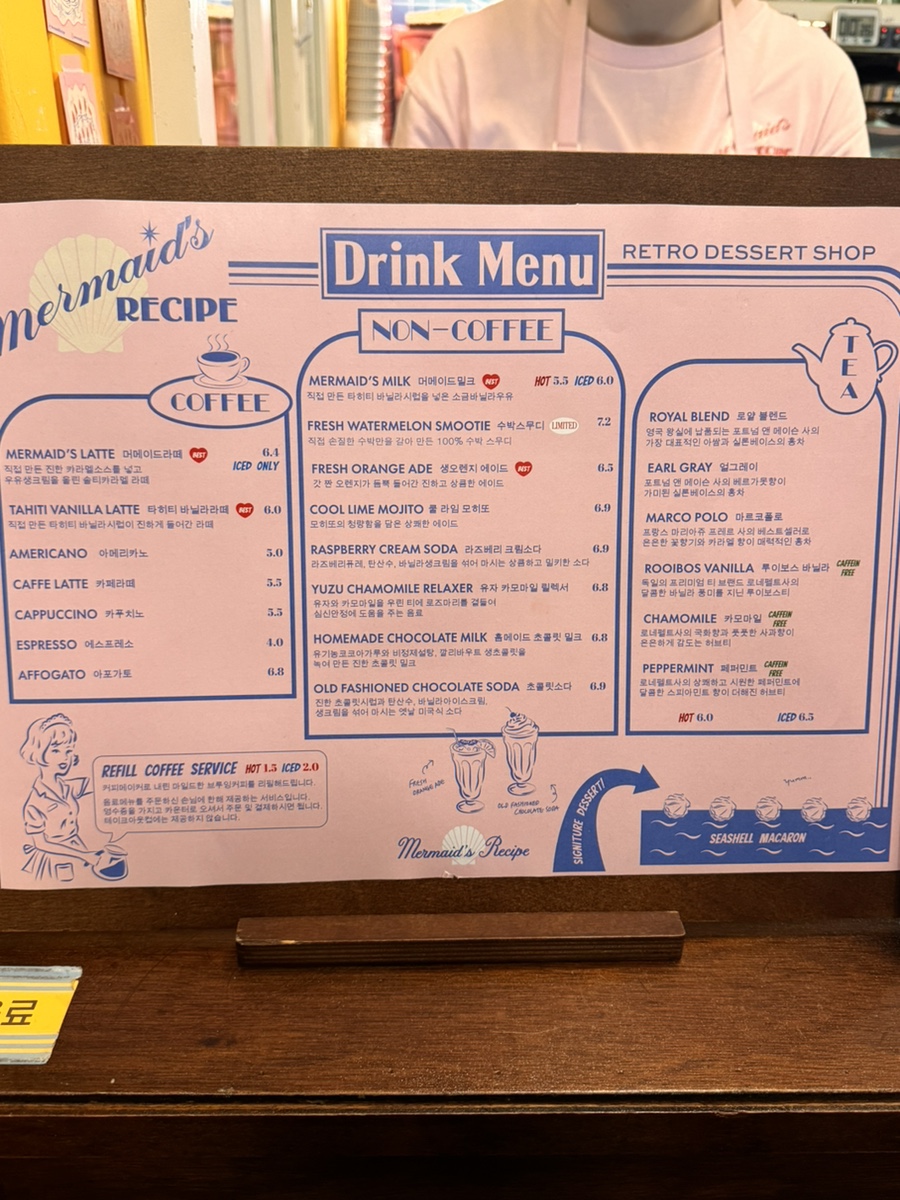 Mermaid's
RECIPE
Drink Menu
RETRO DESSERT SHOP
COFFEE
MERMAID'S LATTE 머메이드라떼 BEST 6.4
ICED ONLY
직접 만든 진한 카라멜소스를 넣고
우유생크림을 올린 솔티카라멜 라떼
TAHITI VANILLA LATTE 타히티 바닐라라떼 BEST 6.0
직접 만든 타히티 바닐라시럽이 진하게 들어간 라떼
AMERICANO 아메리카노 5.0
CAFFE LATTE 카페라떼 5.5
CAPPUCCINO 카푸치노 5.5
ESPRESSO 에스프레소 4.0
AFFOGATO 아포가토 6.8
NON-COFFEE
MERMAID'S MILK 머메이드밀크 BEST HOT 5.5 ICED 6.0
직접 만든 타히티 바닐라시럽을 넣은 소금바닐라우유
FRESH WATERMELON SMOOTIE 수박스무디 LIMITED 7.2
직접 손질한 수박만을 갈아 만든 100% 수박 스무디
FRESH ORANGE ADE 생오렌지 에이드 BEST 6.5
갓 짠 오렌지가 듬뿍 들어간 진하고 상큼한 에이드
COOL LIME MOJITO 쿨 라임 모히또 6.9
모히또의 청량함을 담은 상쾌한 에이드
RASPBERRY CREAM SODA 라즈베리 크림소다 6.9
라즈베리퓨레, 탄산수, 바닐라생크림을 섞어 마시는 상큼하고 밀키한 소다
YUZU CHAMOMILE RELAXER 유자 카모마일 릴렉서 6.8
유자와 카모마일을 우린 티에 로즈마리를 곁들여
심신안정에 도움을 주는 음료
HOMEMADE CHOCOLATE MILK 홈메이드 초콜릿 밀크 6.8
유기농코코아가루와 비정제설탕, 깔리바우트 생초콜릿을
녹여 만든 진한 초콜릿 밀크
OLD FASHIONED CHOCOLATE SODA 초콜릿소다 6.9
진한 초콜릿시럽과 탄산수, 바닐라아이스크림,
생크림을 섞어 마시는 옛날 미국식 소다
TEA
ROYAL BLEND 로얄 블렌드
영국 왕실에 납품되는 포트넘 앤 메이슨 사의
가장 대표적인 아쌈과 실론베이스의 홍차
EARL GRAY 얼그레이
포트넘 앤 메이슨 사의 베르가못향이
가미된 실론베이스의 홍차
MARCO POLO 마르코폴로
프랑스 마리아쥬 프레르 사의 베스트셀러로
은은한 꽃향기와 카라멜 향이 매력적인 홍차
ROOIBOS VANILLA 루이보스 바닐라 CAFFEIN FREE
독일의 프리미엄 티 브랜드 로네펠트사의
달콤한 바닐라 풍미를 지닌 루이보스티
CHAMOMILE 카모마일 CAFFEIN FREE
로네펠트사의 국화향과 풋풋한 사과향이
은은하게 감도는 허브티
PEPPERMINT 페퍼민트 CAFFEIN FREE
로네펠트사의 상쾌하고 시원한 페퍼민트에
달콤한 스피아민트 향이 더해진 허브티
HOT 6.0 ICED 6.5
REFILL COFFEE SERVICE HOT 1.5 ICED 2.0
커피메이커로 내린 마일드한 브루잉커피를 리필해드립니다.
음료메뉴를 주문하신 손님에 한해 제공하는 서비스입니다.
영수증을 가지고 카운터로 오셔서 주문 및 결제하시면 됩니다.
테이크아웃컵에는 제공하지 않습니다.
FRESH
ORANGE ADE
OLD FASHIONED
CHOCOLATE SODA
Mermaid's Recipe
SIGNITURE DESSERT!
yumm..
SEASHELL MACARON
료